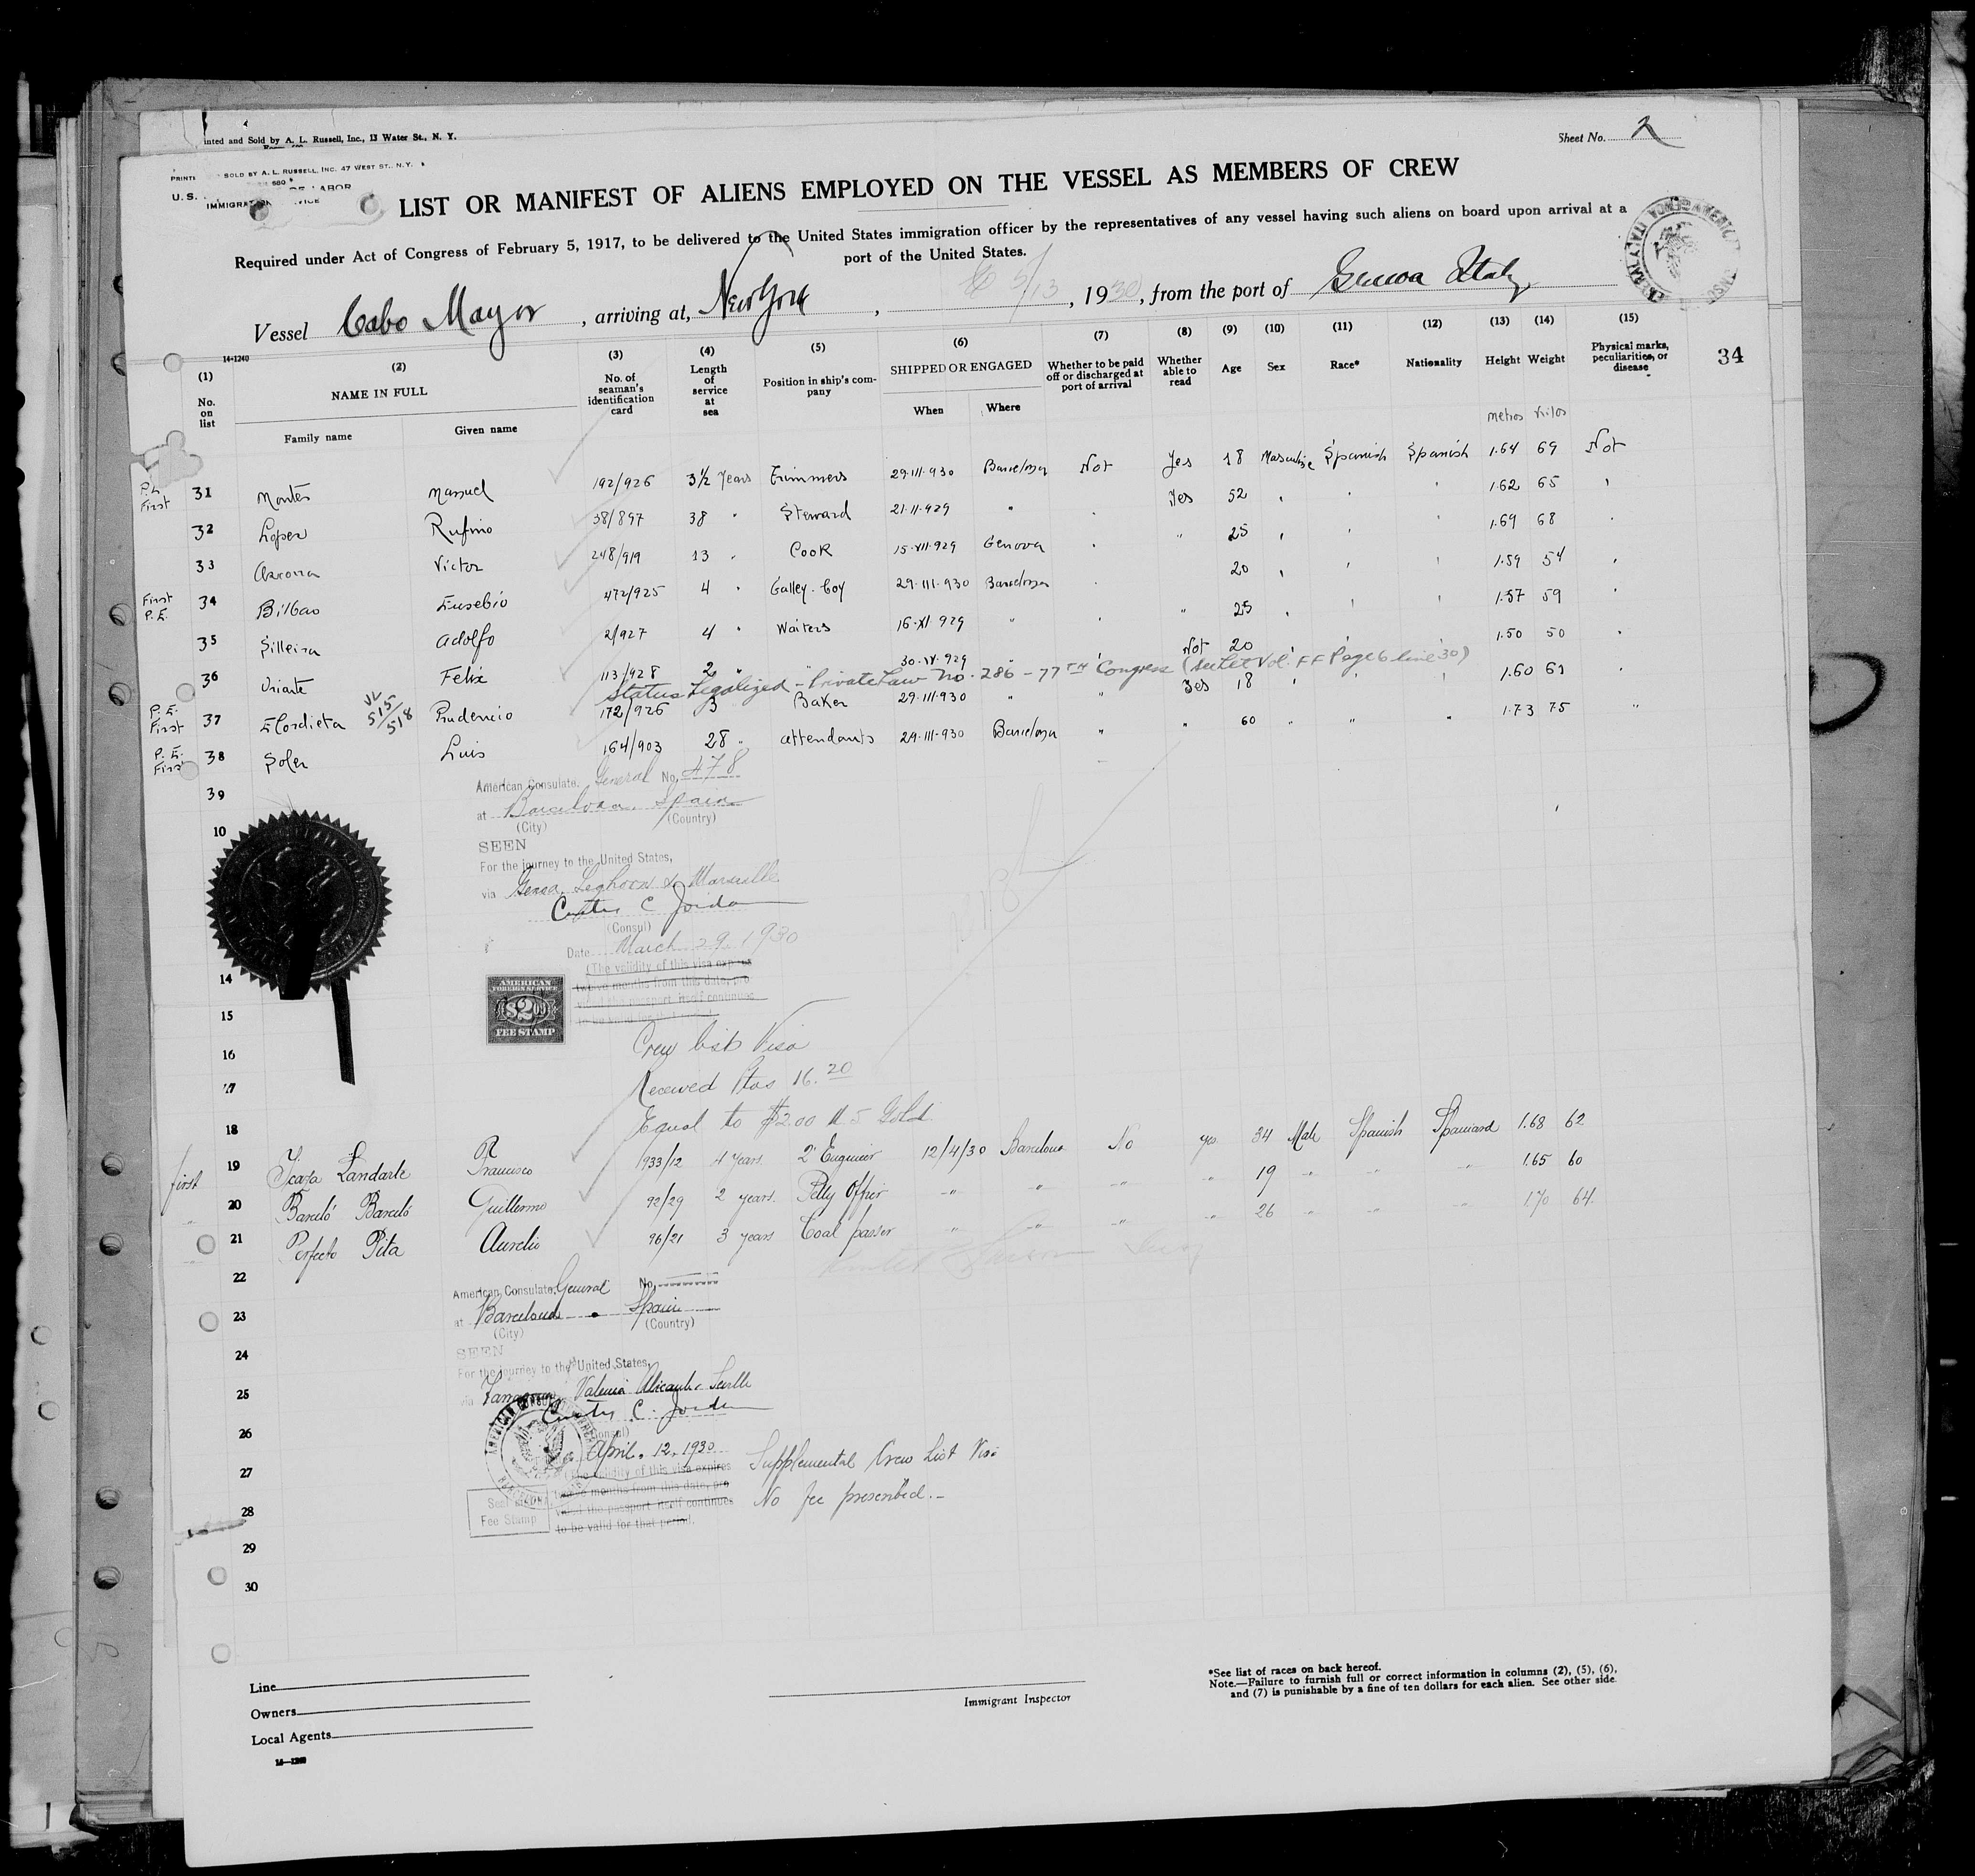 inted and Sold by A. L. Russell, Inc., 13 Water St., N. Y.
Sheet No. 2
SOLD BY A. L. RUSSELL, INC. 47 WEST ST., N.Y.
680
U.S. LABOR
LIST OR MANIFEST OF ALIENS EMPLOYED ON THE VESSEL AS MEMBERS OF CREW
Required under Act of Congress of February 5, 1917, to be delivered to the United States immigration officer by the representatives of any vessel having such aliens on board upon arrival at a
port of the United States.
Vessel Cabo Mayor, arriving at, New York, 5/13, 1930, from the port of Genova Italy
14-1240
34
(1) (2) (3) (4) (5) (6) (7) (8) (9) (10) (11) (12) (13) (14) (15)
No. on list NAME IN FULL No. of seaman's identification card Length of service at sea Position in ship's company SHIPPED OR ENGAGED Whether to be paid off or discharged at port of arrival Whether able to read Age Sex Race* Nationality Height Weight Physical marks, peculiarities, or disease
Family name Given name When Where
metros Kilos
P.E. First 31 Montes Manuel 192/926 3½ Years Trimmers 29-III-930 Barcelona Not Yes 18 Masculine Spanish Spanish 1.64 69 Not
32 Lopez Rufino 38/897 38 " Steward 21-II-929 " Yes 52 1.62 65
33 Victor 248/919 13 " Cook 15-VII-929 Genova " 25 1.69 68
First P.E. 34 Bilbao Eusebio 472/925 4 " Galley-boy 29-III-930 Barcelona 20 1.59 54
35 Silleira Adolfo 2/927 4 " Waiters 16-XI-929 " " 25 1.57 59
36 Uriarte Felix 113/928 2 " " 929 " Not 20 1.50 50
Status Legalized - Private Law No. 286 - 77TH Congress (see Let Vol. FF Page 6 line 30)
P.E. First 37 Elordieta 515/518 Prudencio 172/926 3 Baker 29-III-930 " " Yes 18 1.60 61
P.E. First 38 Soler Luis 164/903 28 " attendants 29-III-930 Barcelona " " 60 " " " 1.73 75 "
39
American Consulate. General No. 478
at Barcelona, Spain
(City) (Country)
10
SEEN
For the journey to the United States,
via Genoa, Leghorn & Marseille
Curtis C Jordan
(Consul)
Date March 29, 1930
(The validity of this visa expires
twelve months from this date, pro
vided the passport itself continues
14
AMERICAN
FOREIGN SERVICE
$2.00
FEE STAMP
15
16
Crew list Visa
17
Received Ptas 16.20
Equal to $2.00 U.S. Gold
18
first 19 Icaza Landarte Francisco 1933/12 4 years. 2º Engineer 12/4/30 Barcelona No yes 34 Male Spanish Spaniard 1.68 62
" 20 Barceló Barceló Guillermo 92/29 2 years. Petty Officer " " " " 19 " " " 1.65 60
" 21 Perfecto Pita Aurelio 96/21 3 years Coal passer " " " " 26 " " " 1.70 64.
22
American Consulate General No.
23
at Barcelona Spain
(City) (Country)
24
SEEN
For the journey to the United States,
25
via Tarragona, Valencia Alicante Seville
Curtis C. Jordan
26
(Consul)
April. 12, 1930
Supplemental Crew List Visa
27
(The validity of this visa expires
twelve months from this date, pro
vided the passport itself continues
to be valid for that period.
No fee prescribed.-
28
Seal
Fee Stamp
29
30
Line
Owners
Local Agents
Immigrant Inspector
*See list of races on back hereof.
Note.—Failure to furnish full or correct information in columns (2), (5), (6),
and (7) is punishable by a fine of ten dollars for each alien. See other side.